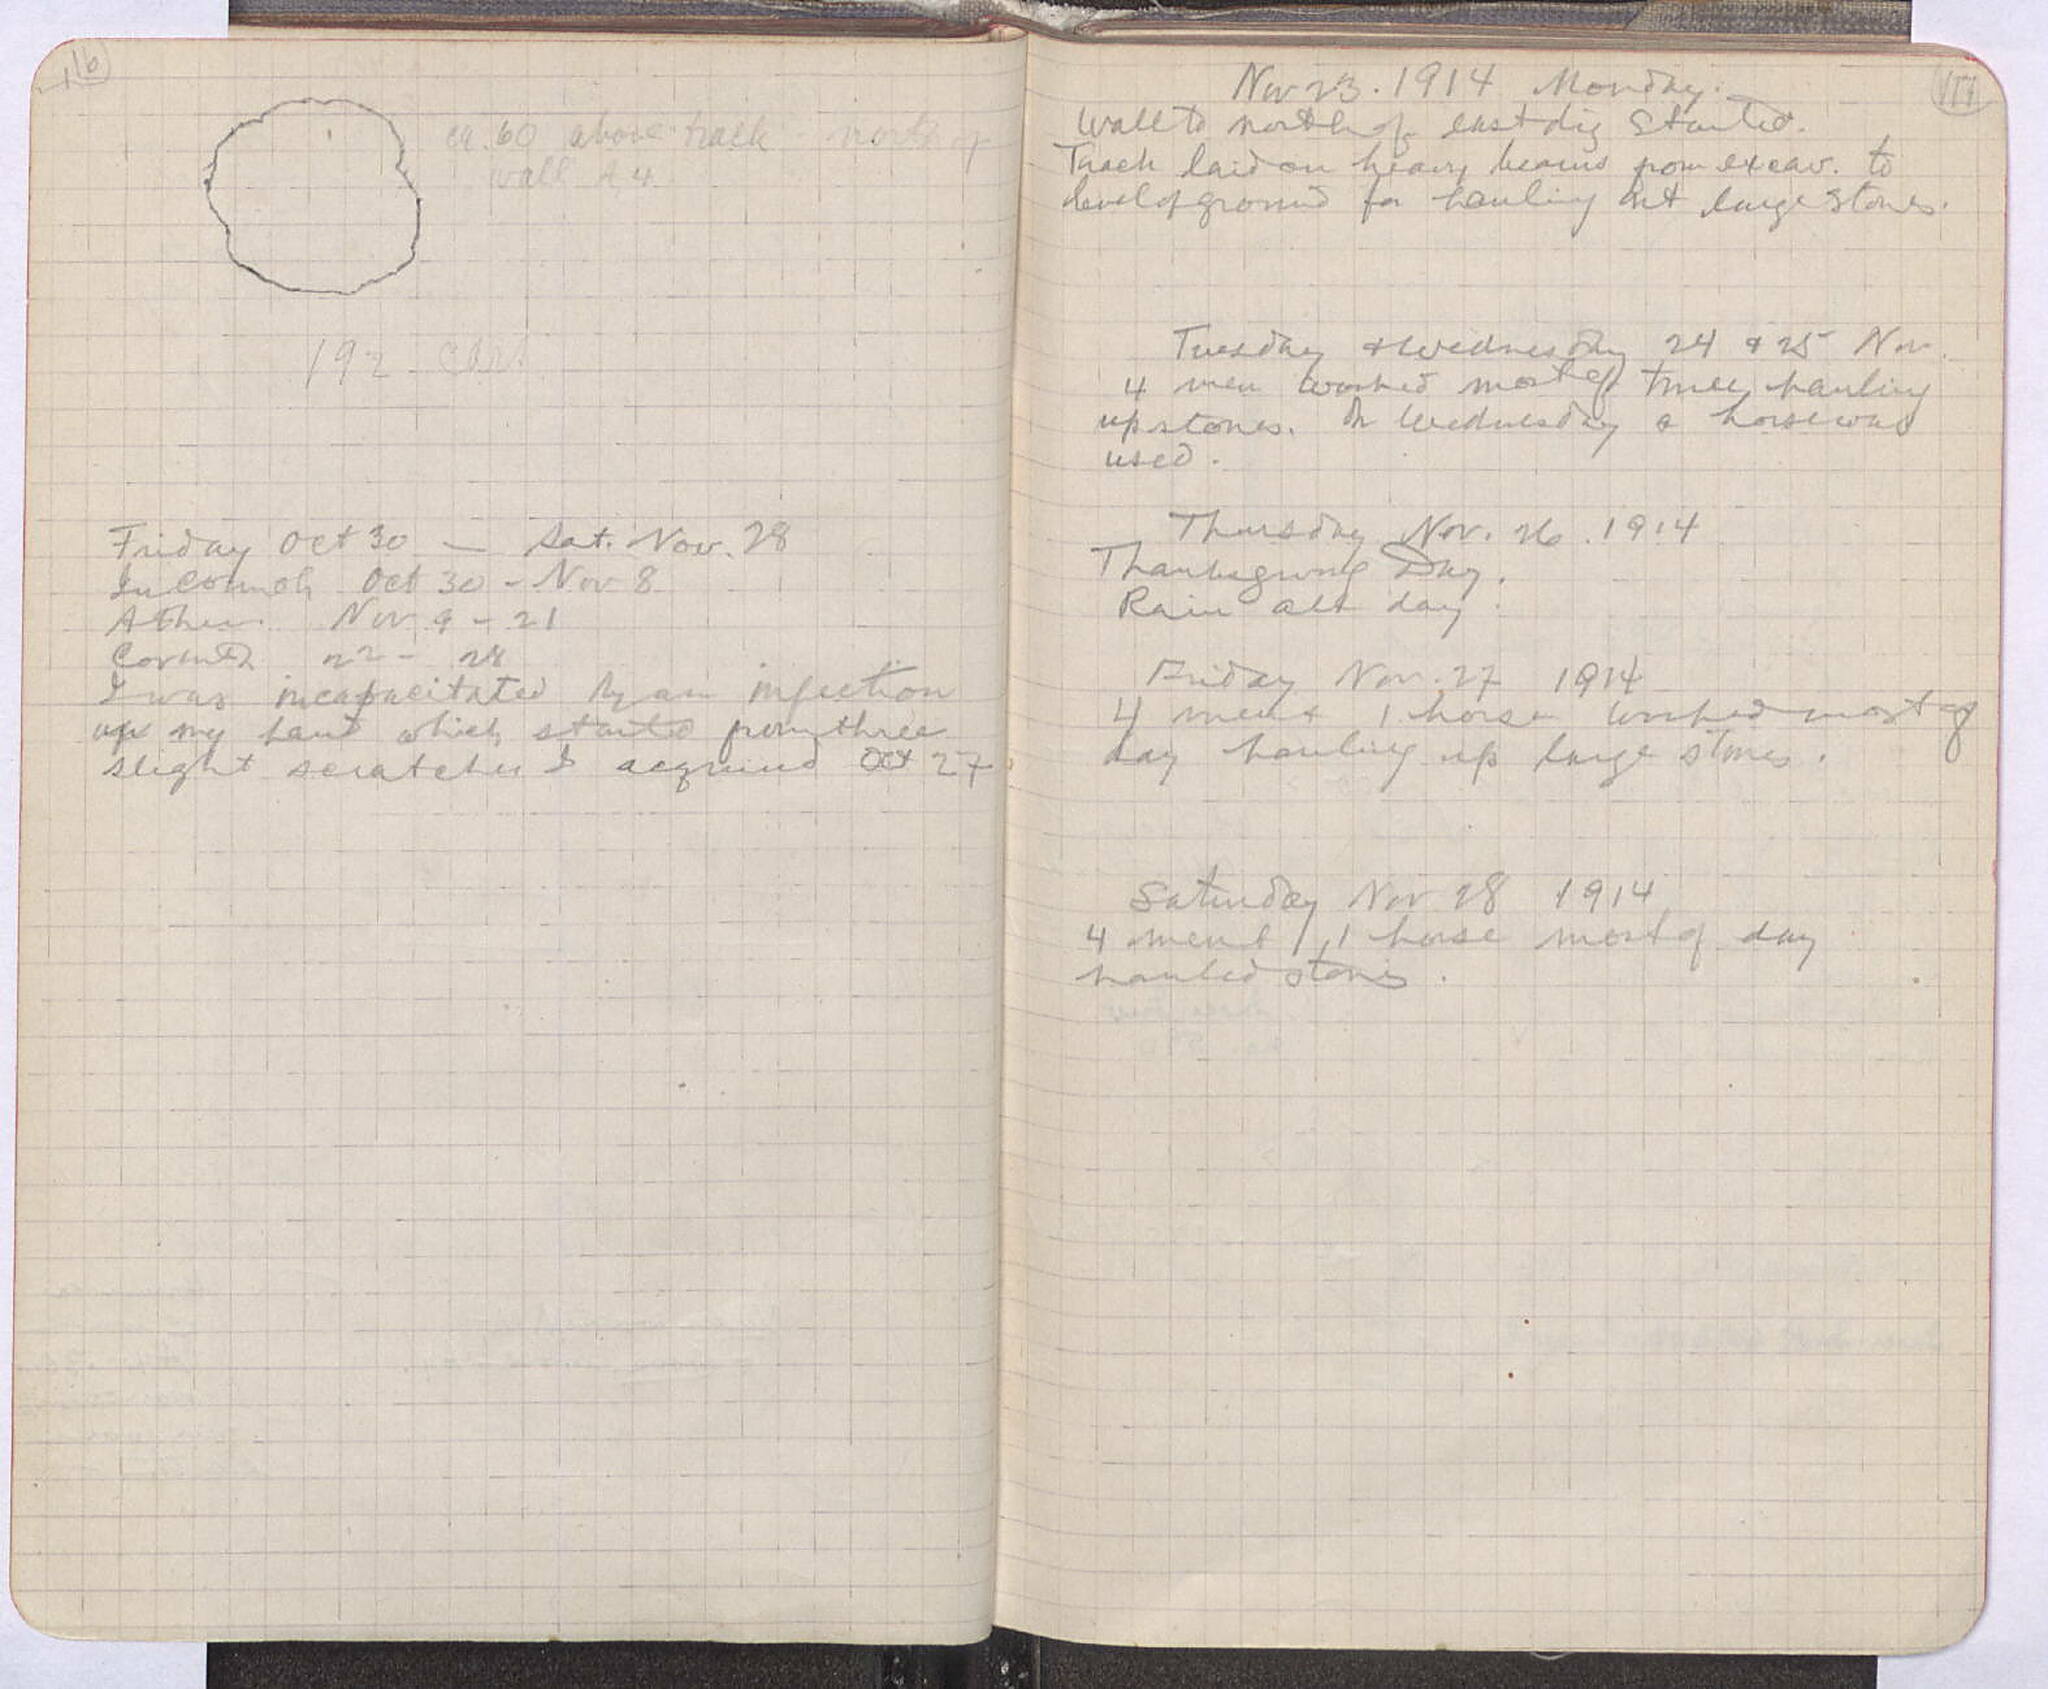 116
ca. 60 above track - north of
wall A 4
192 cars
Friday Oct 30 — Sat. Nov. 28
In Corinth Oct 30 - Nov 8
Athens Nov 9 - 21
Corinth 22 - 28
I was incapacitated by an infection
my hand which started from three
slight scratches I acquired Oct 27
117
Nov 23. 1914 Monday.
Wall to north of east dig started.
Track laid on heavy beams from excav. to
level of ground for hauling out large stones.
Tuesday & Wednesday 24 & 25 Nov.
4 men worked most of time hauling
up stones. On Wednesday a horse was
used.
Thursday Nov. 26. 1914
Thanksgiving Day.
Rain all day.
Friday Nov. 27 1914
4 men & 1 horse worked most of
day hauling up large stones.
Saturday Nov 28 1914
4 men & 1 horse most of day
hauled stones.